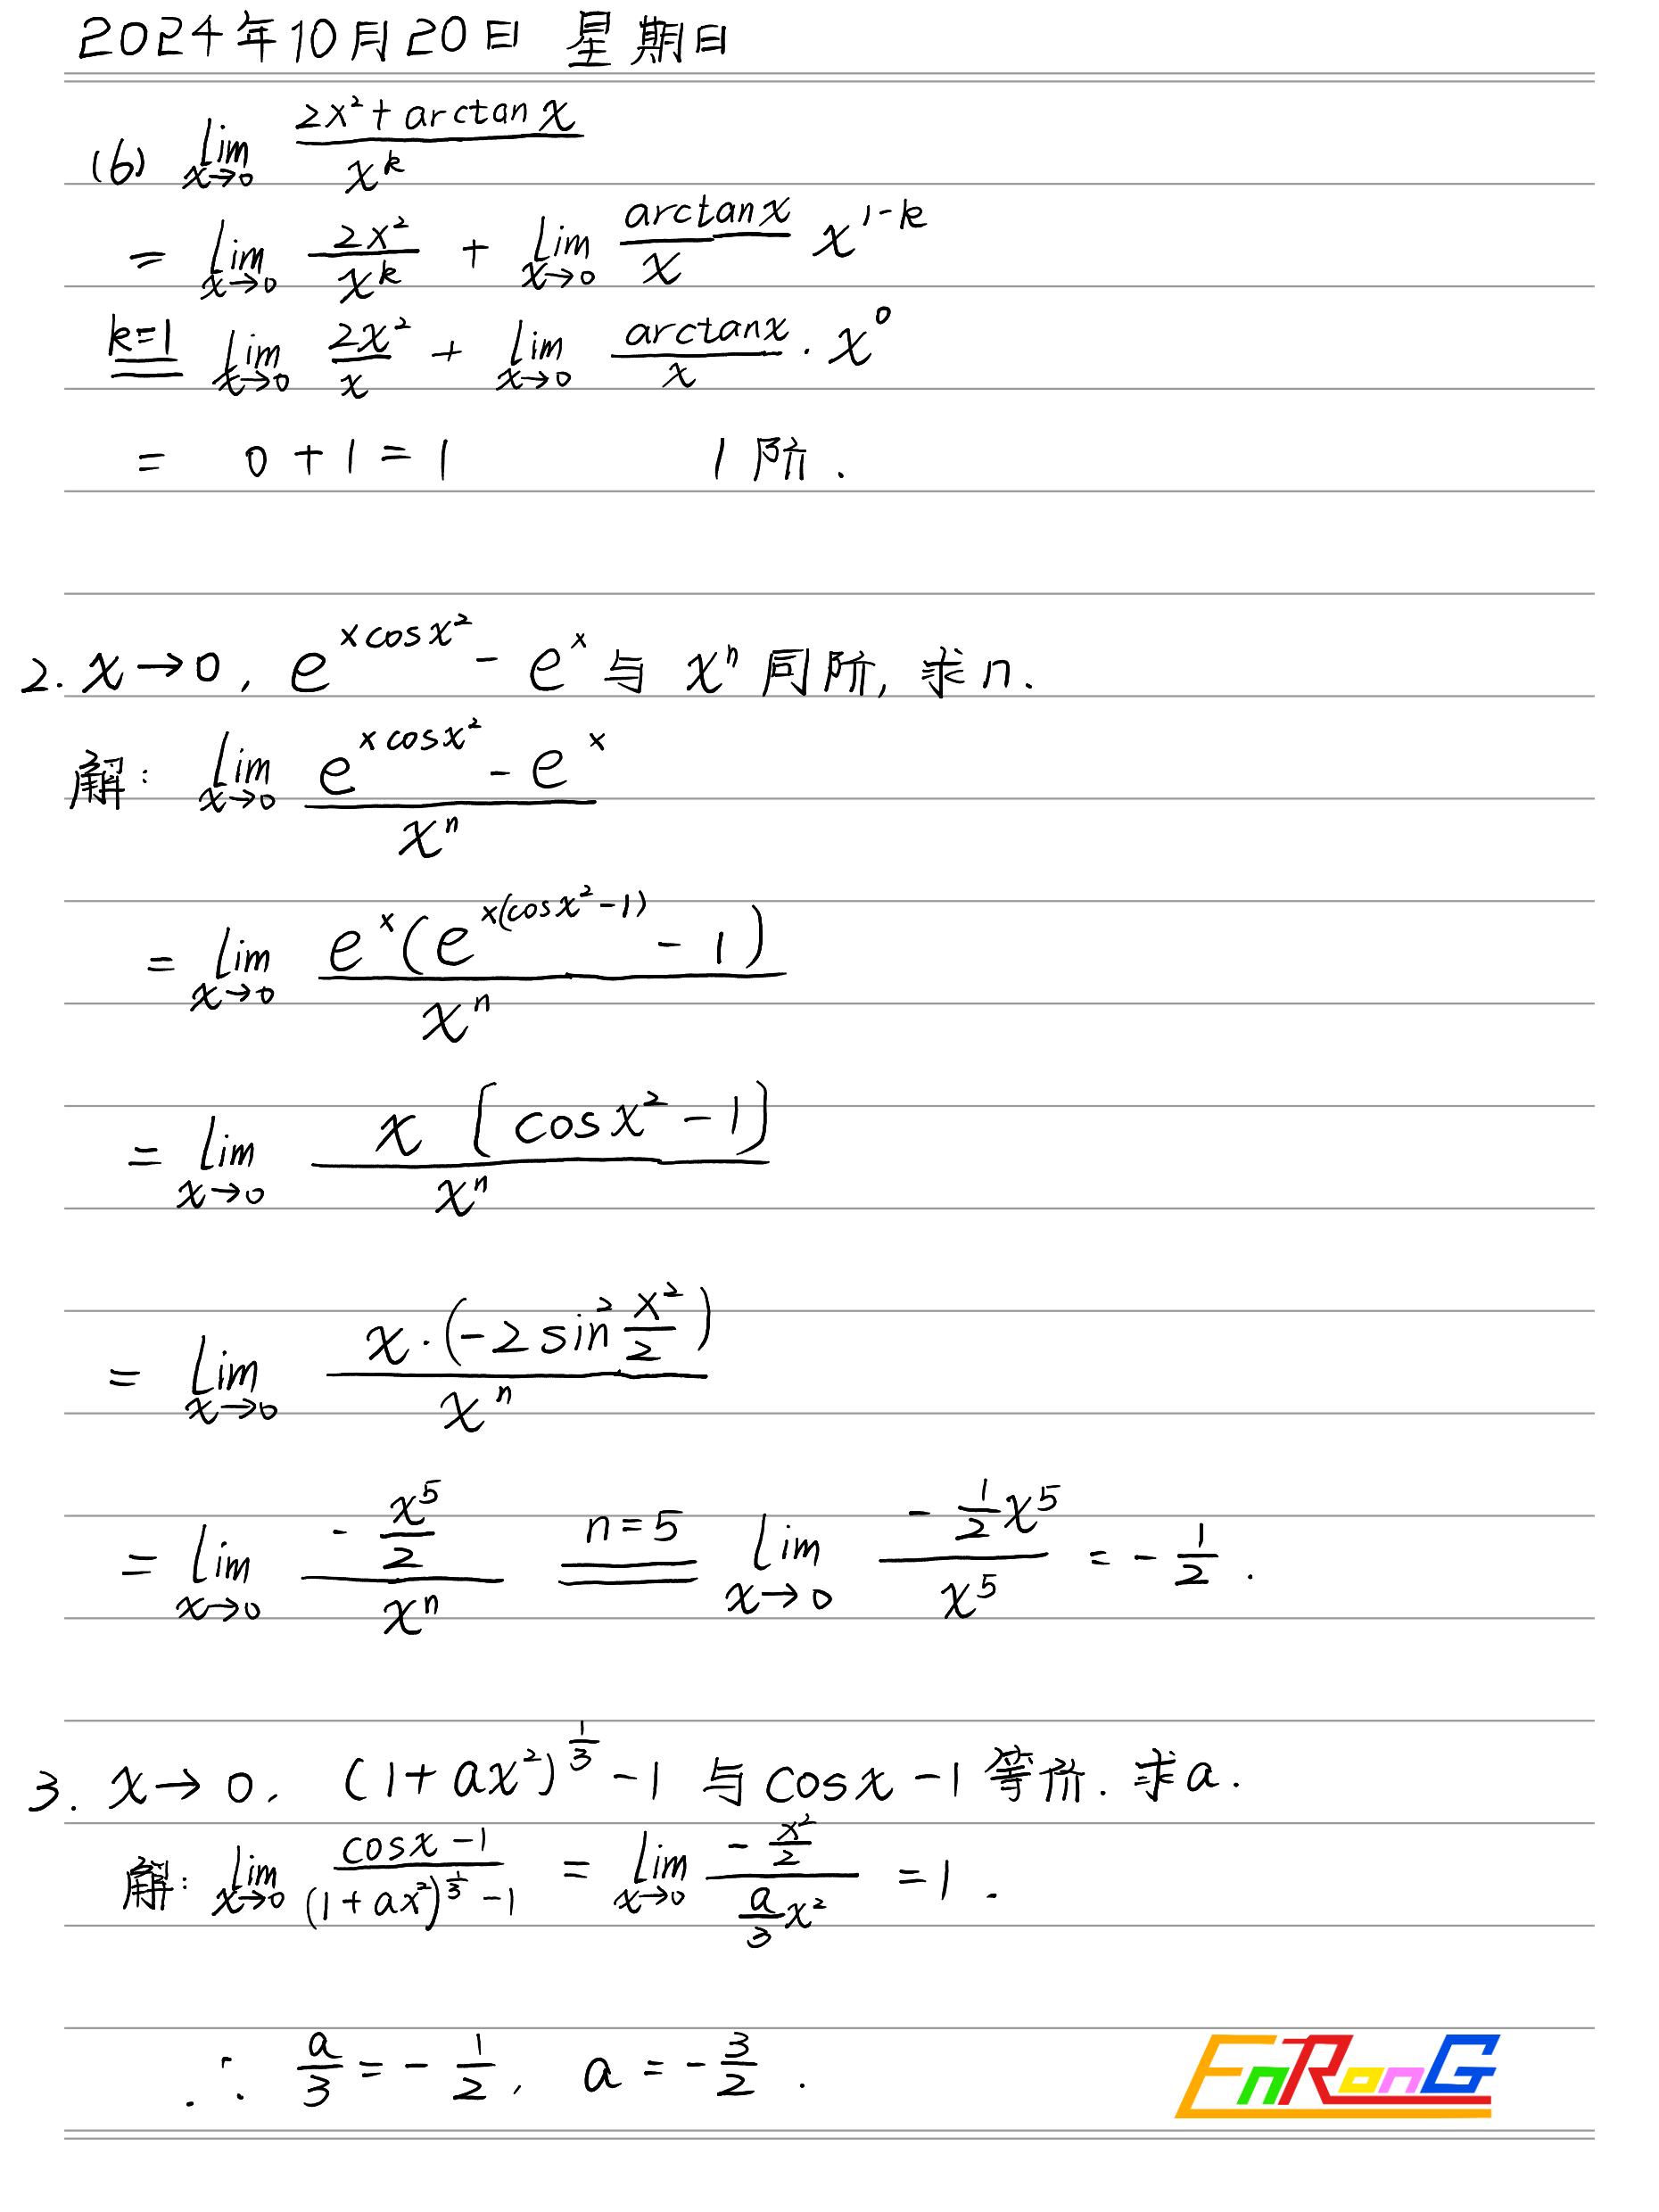 2024年10月20日 星期日
(6) lim x→0 (2x²+arctan x)/x^k
= lim x→0 2x²/x^k + lim x→0 arctanx/x x^(1-k)
k=1 lim x→0 2x²/x + lim x→0 arctanx/x · x⁰
= 0+1=1 1阶.
2. x→0, e^(xcosx²) - e^x 与 x^n 同阶, 求n.
解: lim x→0 (e^(xcosx²) - e^x)/x^n
= lim x→0 e^x(e^(x(cosx²-1)) - 1)/x^n
= lim x→0 x[cosx²-1]/x^n
= lim x→0 x·(-2sin² x²/2)/x^n
= lim x→0 (-x⁵/2)/x^n n=5 lim x→0 (-1/2 x⁵)/x⁵ = -1/2.
3. x→0, (1+ax²)^(1/3) -1 与 cosx-1 等价. 求a.
解: lim x→0 (cosx-1)/((1+ax²)^(1/3) -1) = lim x→0 (-x²/2)/(a/3 x²) = 1.
∴ a/3 = -1/2, a = -3/2.
EnRonG